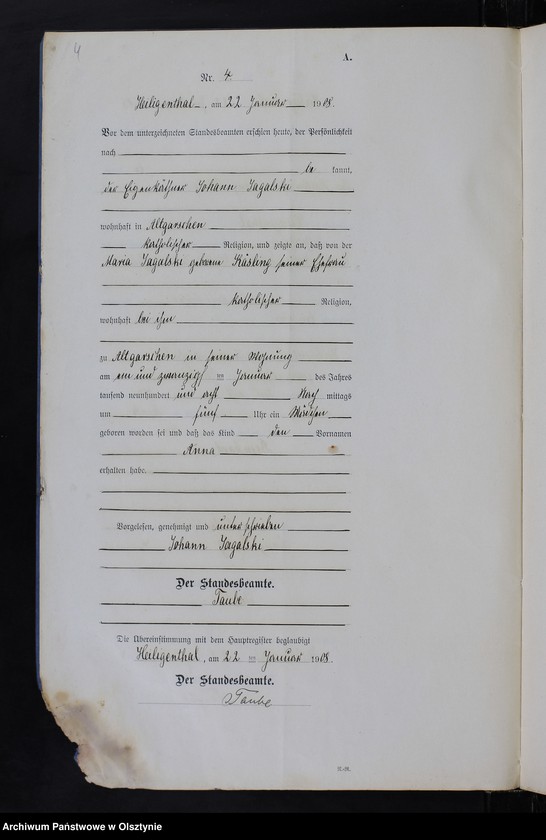 4
A.
Nr. 4.
Heiligenthal, am 22 Januar 1908.
Vor dem unterzeichneten Standesbeamten erschien heute, der Persönlichkeit
nach
be kannt,
der Eigenkäthner Johann Jagalski
wohnhaft in Altgarschen
katholischer Religion, und zeigte an, daß von der
Maria Jagalski geborene Käsling seiner Ehefrau
katholischer Religion,
wohnhaft bei ihm
zu Altgarschen in seiner Wohnung
am ein und zwanzigsten Januar des Jahres
tausend neunhundert und acht Nach mittags
um fünf Uhr ein Mädchen
geboren worden sei und daß das Kind den Vornamen
Anna
erhalten habe.
Vorgelesen, genehmigt und unterschrieben
Johann Jagalski
Der Standesbeamte.
Taube
Die Übereinstimmung mit dem Hauptregister beglaubigt
Heiligenthal, am 22 ten Januar 1908.
Der Standesbeamte.
Taube
Archiwum Państwowe w Olsztynie